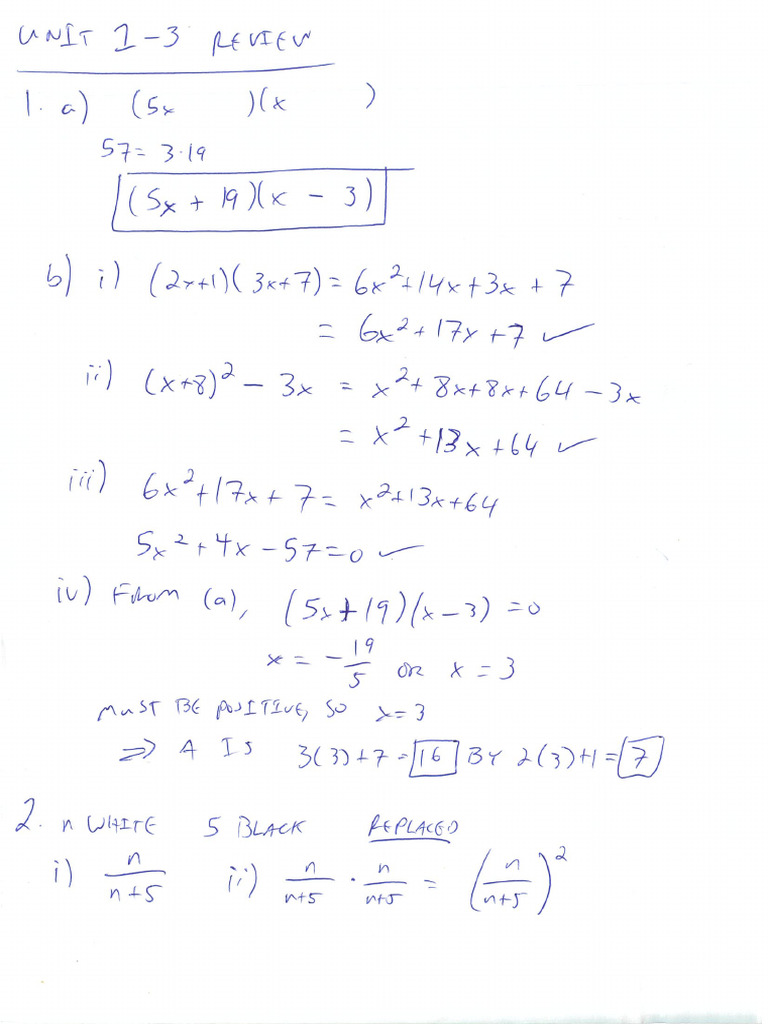 UNIT 1-3 REVIEW
1. a) (5x )(x )
57 = 3·19
(5x + 19)(x - 3)
b) i) (2x+1)(3x+7) = 6x²+14x+3x + 7
= 6x²+17x+7 ✓
ii) (x+8)² - 3x = x²+8x+8x+64-3x
= x²+13x+64 ✓
iii) 6x²+17x+7 = x²+13x+64
5x²+4x-57=0 ✓
iv) FROM (a), (5x+19)(x-3) = 0
x = -19/5 OR x = 3
MUST BE POSITIVE, SO x=3
⇒ A IS 3(3)+7 = 16 BY 2(3)+1 = 7
2. n WHITE 5 BLACK REPLACED
i) n/(n+5) ii) n/(n+5) · n/(n+5) = (n/(n+5))²